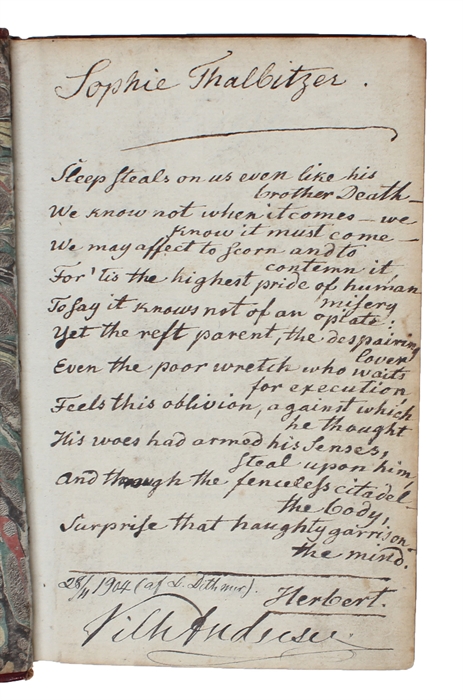 Sophie Thalbitzer.
Sleep steals on us even like his
brother Death —
We know not when it comes — we
know it must come —
We may affect to scorn and to
contemn it,
For 'tis the highest pride of human
misery
To say it knows not of an opiate:
Yet the reft parent, the despairing
lover
Even the poor wretch who waits
for execution,
Feels this oblivion, against which
he thought
His woes had armed his Senses,
steal upon him,
And through the fenceless citadel —
the body,
Surprise that haughty garrison
the mind.
Herbert.
28/11 1904 (af L. Dithmer).
Vilh Andersen.